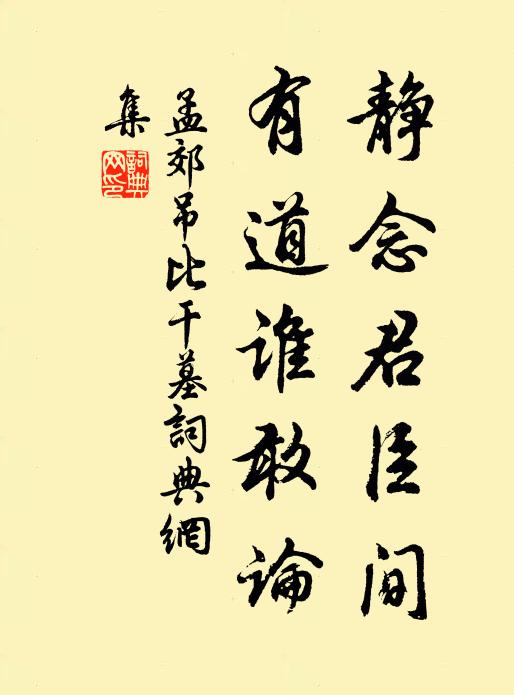 静念君臣间
有道谁敢论
孟郊吊比干墓詞典網
集
詞典
网印